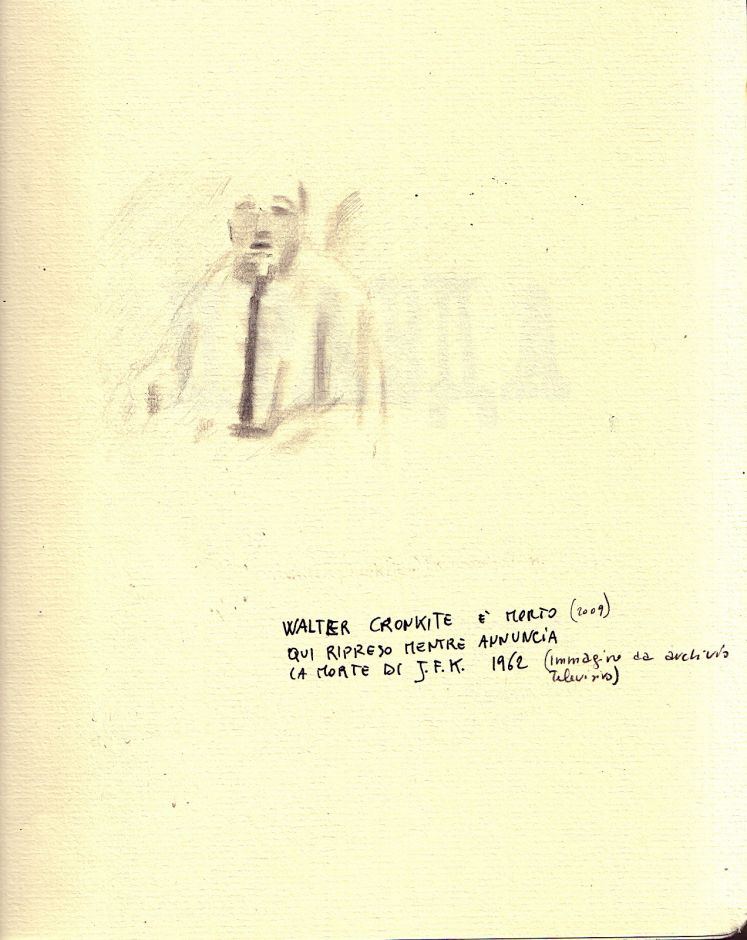 WALTER CRONKITE È MORTO (2009)
QUI RIPRESO MENTRE ANNUNCIA
LA MORTE DI J.F.K. 1962 (immagine da archivio
televisivo)